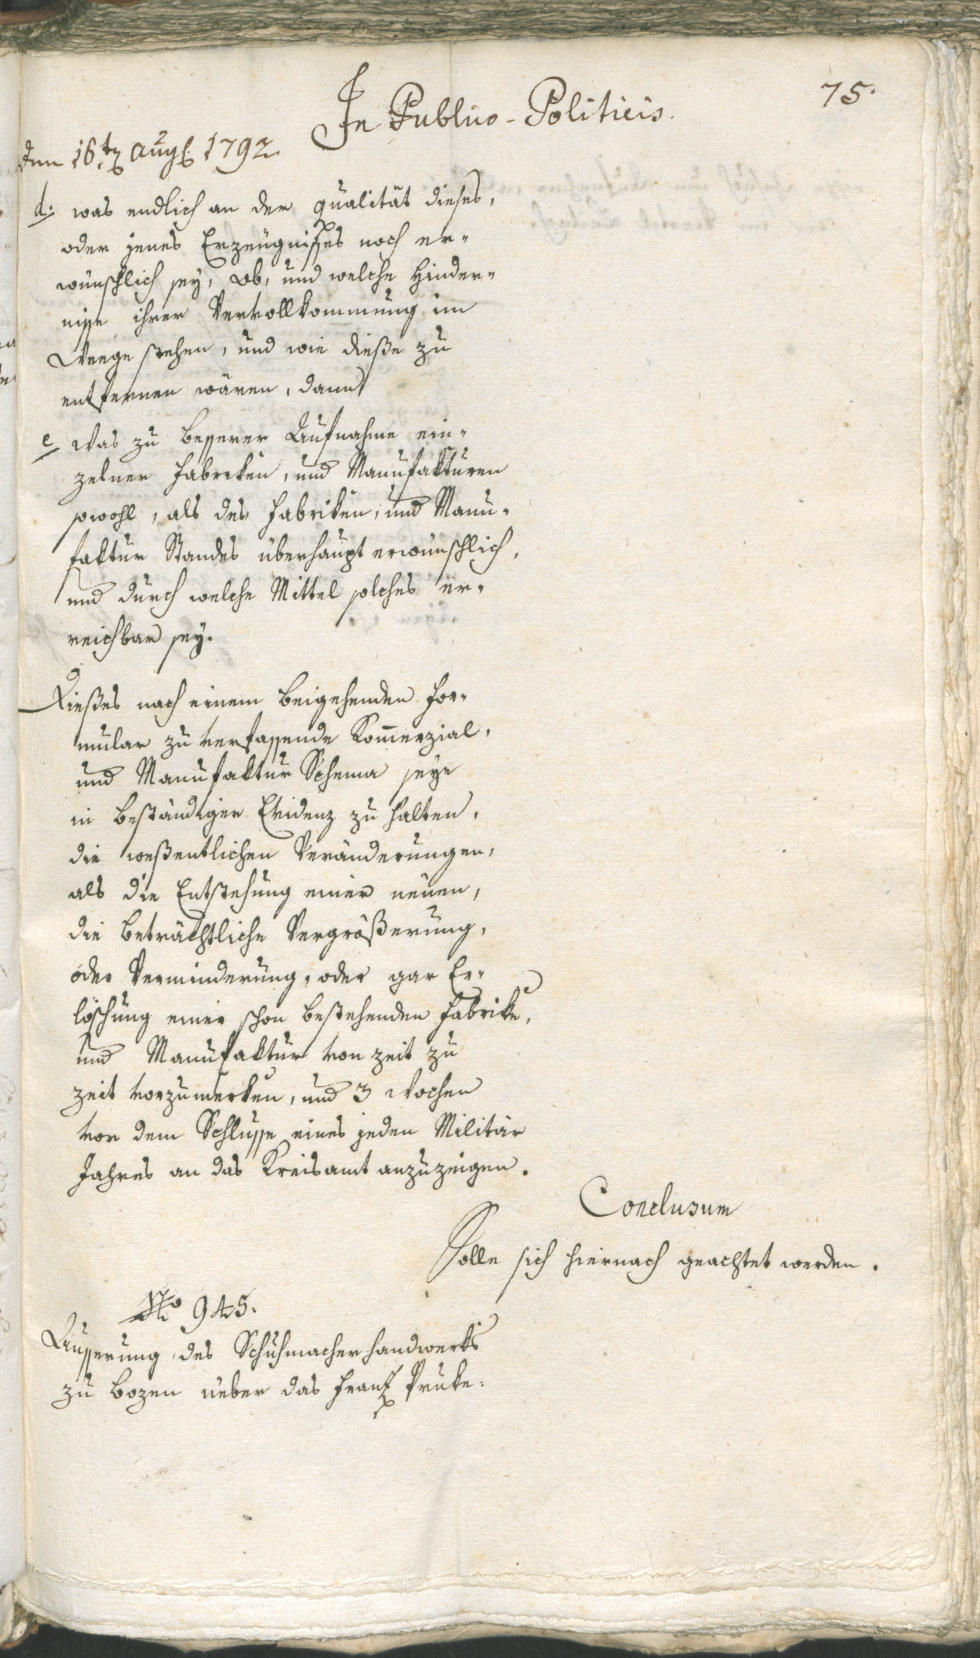 In Publico-Politicis.
75.
den 16t. Aug. 1792.
d: was endlich an der qualität dieses,
oder jenes Erzeugnisses noch er-
wünschlich sey, ob, und welche Hinder-
nisse ihrer Vervollkommung im
Weege stehen, und wie dieße zu
entfernen wären, dann
e Was zu besserer Aufnahme ein-
zelner Fabriken, und Manufakturen
sowohl, als des Fabriken, und Manu-
faktur Standes überhaupt erwünschlich,
und durch welche Mittel solches er-
reichbar sey.
Dießes nach einem beigehenden For-
mular zu verfassende Kom̅erzial,
und Manufaktur Schema seye
in beständiger Evidenz zu halten,
die weßentlichen Veränderungen,
als die Entstehung einer neuen,
die beträchtliche Vergrößerung,
oder Verminderung, oder gar Er-
löschung einer schon bestehenden Fabrike,
und Manufaktur von zeit zu
zeit vorzumerken, und 3 Wochen
vor dem Schlusse eines jeden Militär
Jahres an das Kreisamt anzuzeigen.
Conclusum
Solle sich hiernach geachtet werden.
No 945.
Äusserung des Schuhmacher handwerks
zu Bozen ueber das Franz Pruke-